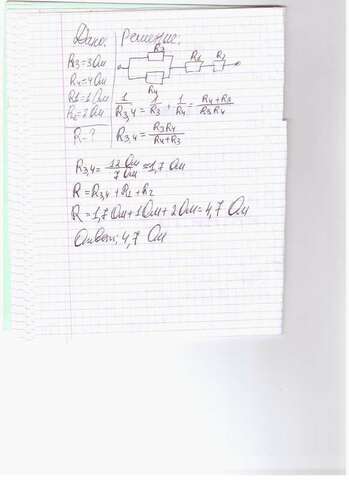 Дано: Решение:
R3=3 Ом
R4=4 Ом
R1=1 Ом
R2=2 Ом
R-?
R3 R4 R1 R2
1/R3,4 = 1/R3 + 1/R4 = R4+R3/R3R4
R3,4 = R3R4/R4+R3
R3,4 = 12 Ом/7 Ом ≈ 1,7 Ом
R = R3,4 + R1 + R2
R = 1,7 Ом + 1 Ом + 2 Ом = 4,7 Ом
Ответ: 4,7 Ом